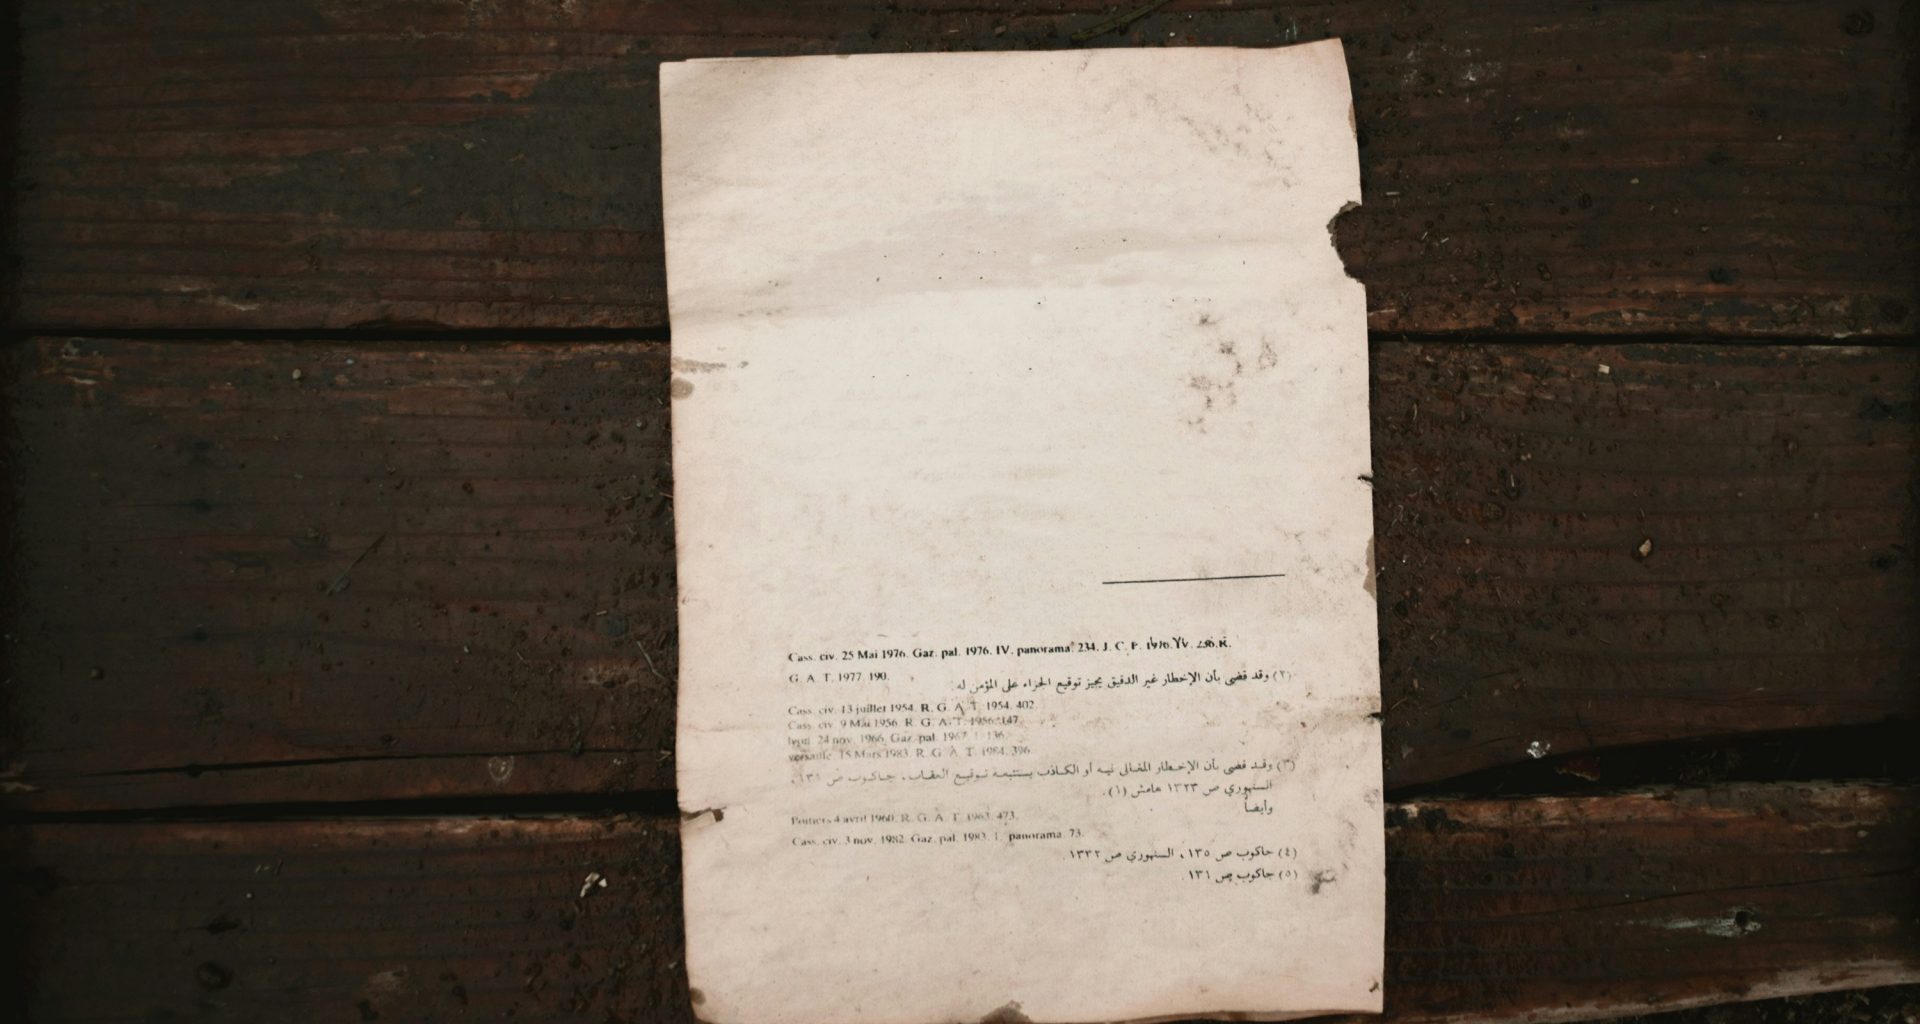 Cass. civ. 25 Mai 1976. Gaz. pal. 1976. IV. panorama. 234. J. C. P. 1976. IV. 236. R.
G. A. T. 1977. 190.
(٢) وقد قضى بأن الإخطار غير الدقيق يجيز توقيع الجزاء على المؤمن له.
Cass. civ. 13 juillet 1954. R. G. A. T. 1954. 402.
Cass. civ. 9 Mai 1956. R. G. A. T. 1956. 147.
24 nov. 1966. Gaz. pal. 1967. 1. 136.
15 Mars 1983. R. G. A. T. 1984. 396.
(٣) وقد قضى بأن الإخطار المغالى فيه أو الكاذب يستتبعه توقيع العقاب، جاكوب ص ١٣١،
السنهوري ص ١٣٢٣ هامش (١).
وأيضاً
Poitiers 4 avril 1960. R. G. A. T. 1963. 473.
Cass. civ. 3 nov. 1982. Gaz. pal. 1983. 1. panorama. 73.
(٤) جاكوب ص ١٣٥، السنهوري ص ١٣٣٢.
(٥) جاكوب ص ١٣١.